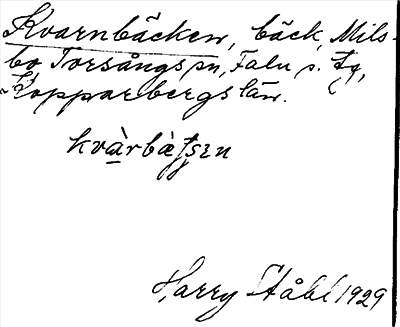 Kvarnbäcken, bäck, Mils-
bo Torsångs sn, Falu s. tg,
Kopparbergs län.
kvàrbàʈʂɛn
Harry Ståhl 1929